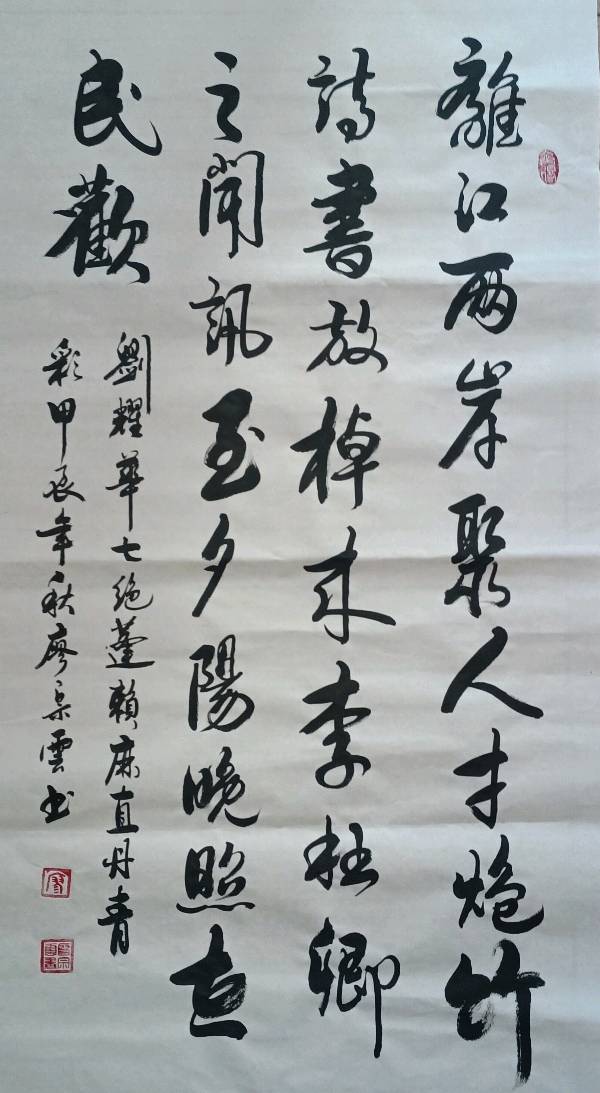 離江兩岸聚人才炮竹
詩書放棹來李杜卿
之聞訊至夕陽晚照
民歡
劉耀華七絕蓬賴直丹青
彩甲辰年秋廖雲书